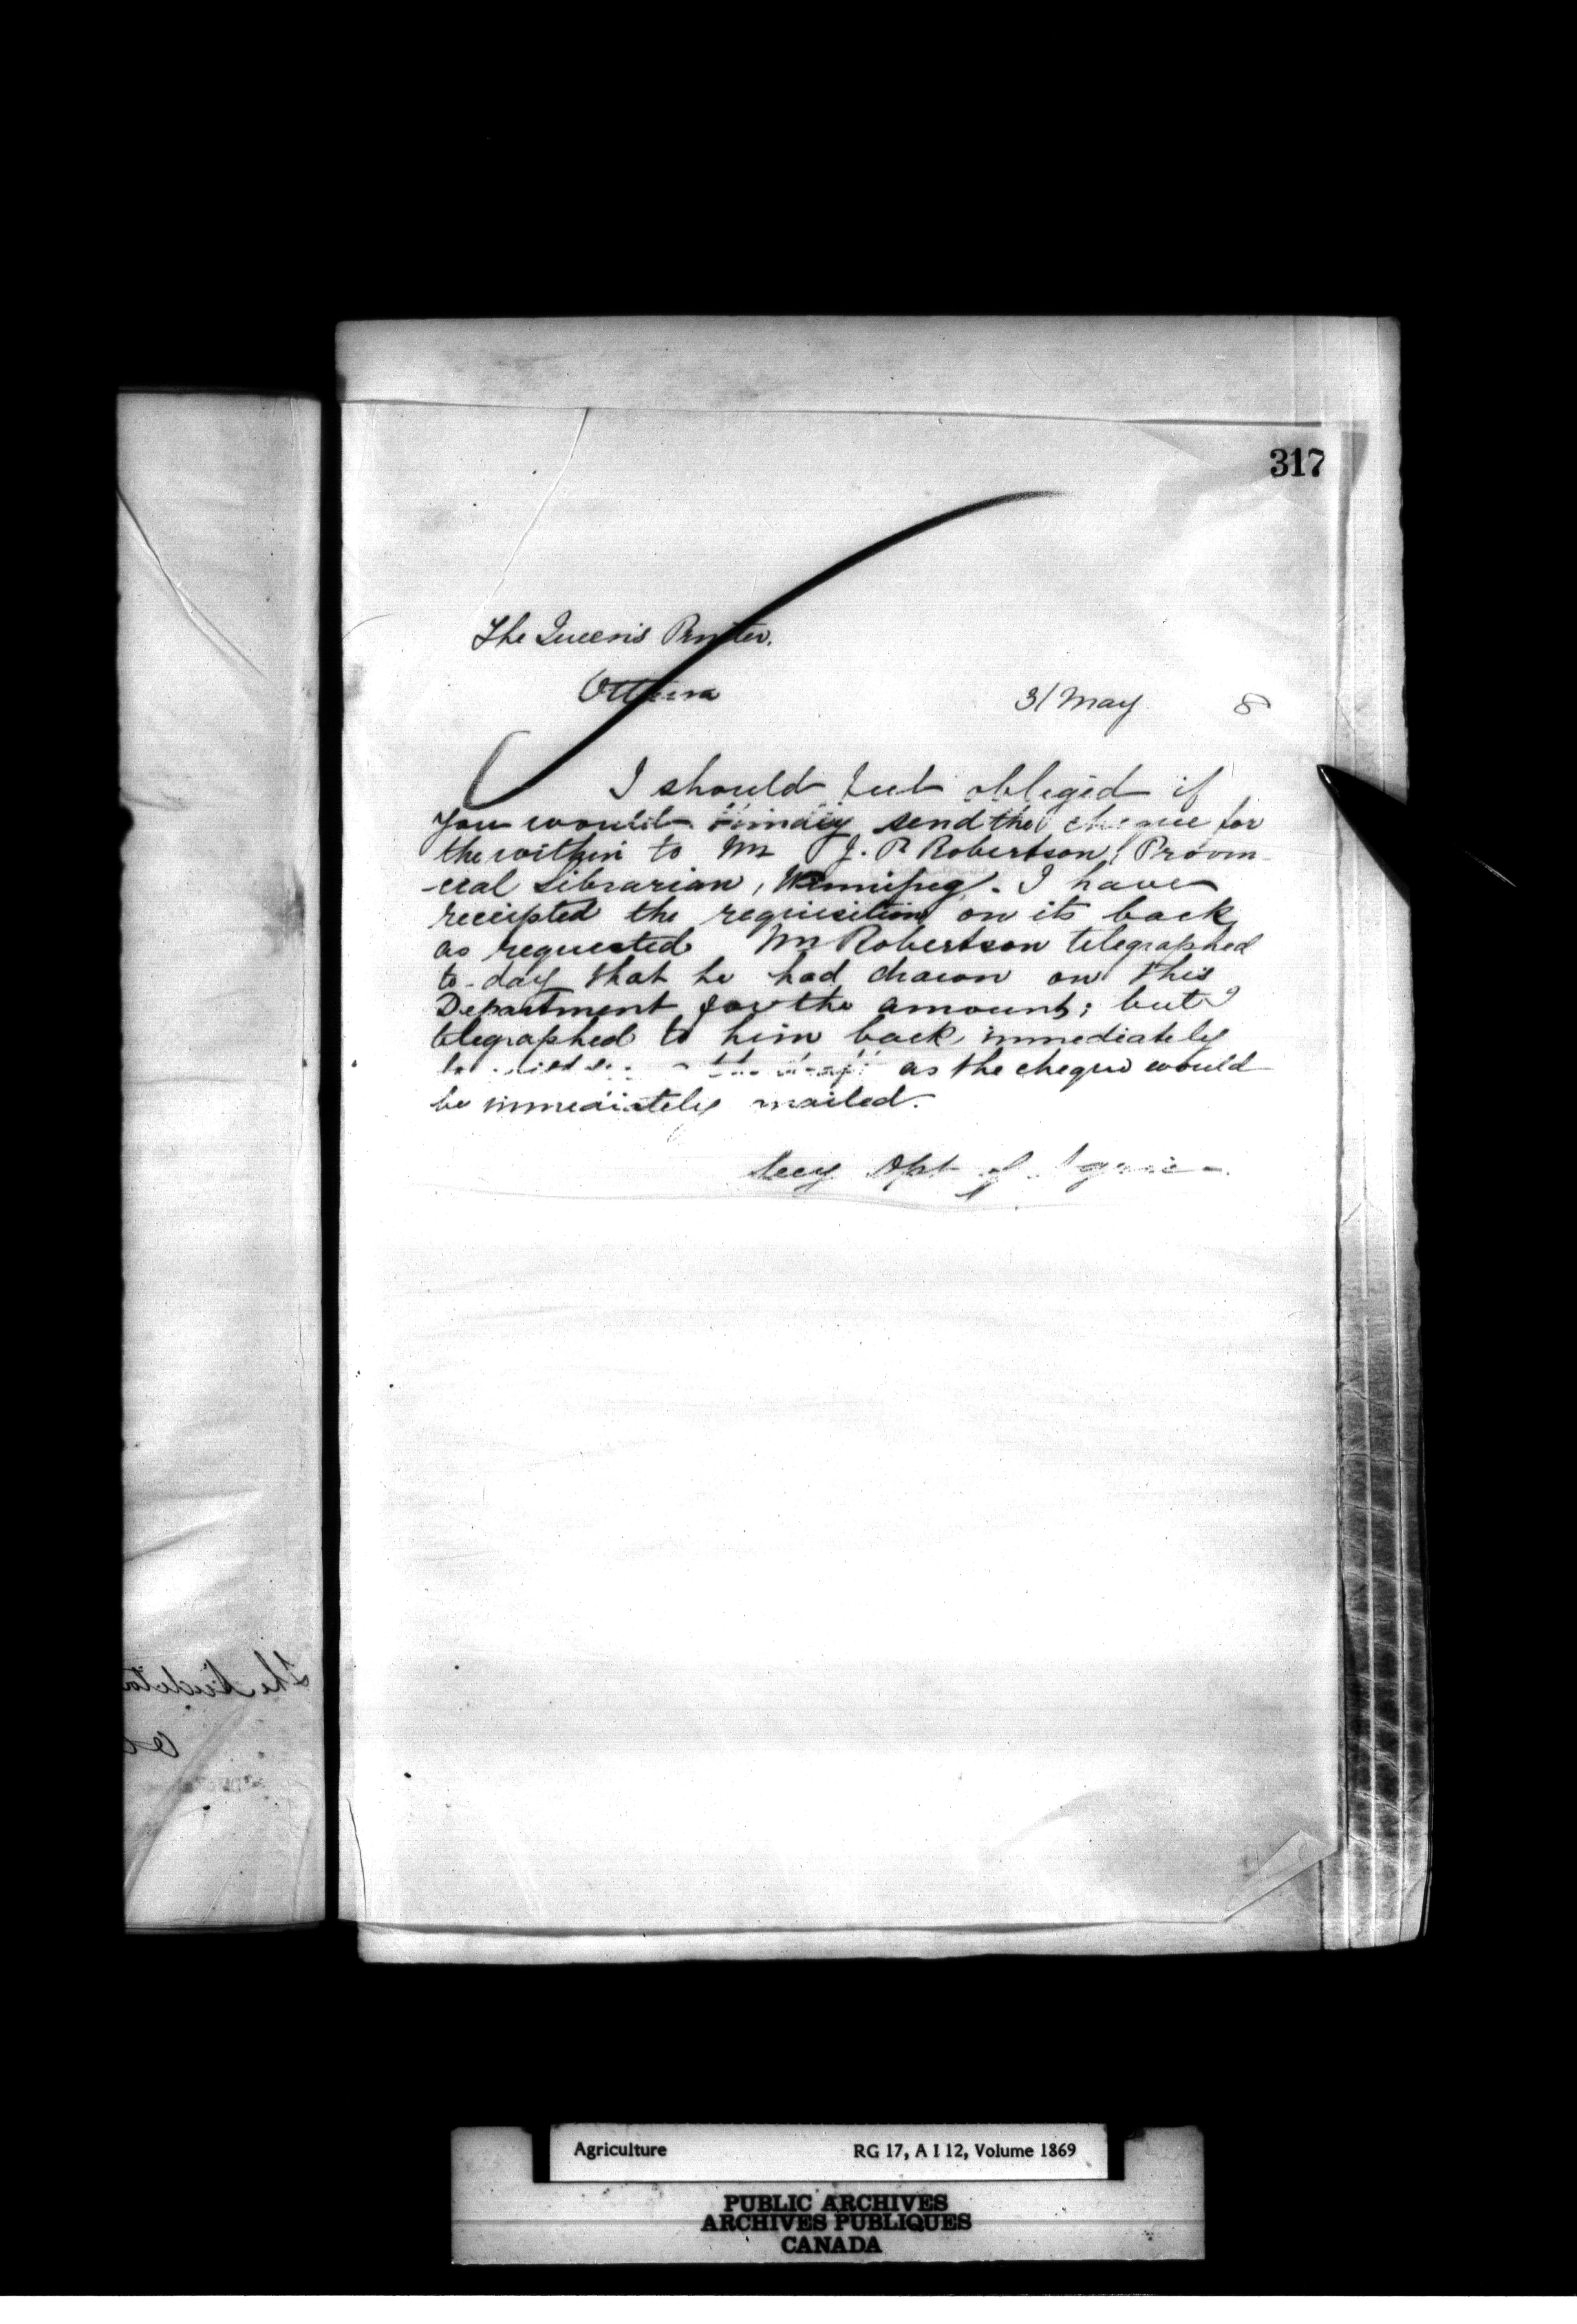 317
The Queen's Printer.
Ottawa
31 May 8
I should feel obliged if
you would kindly send the cheque for
the within to Mr J. P. Robertson, Provin-
-cial Librarian, Winnipeg. I have
receipted the requisition on its back
as requested Mr Robertson telegraphed
to-day that he had drawn on this
Department for the amount; but I
telegraphed to him back immediately
to the draft as the cheque would
be immediately mailed.
Secy Dpt of Agric
Agriculture RG 17, A I 12, Volume 1869
PUBLIC ARCHIVES
ARCHIVES PUBLIQUES
CANADA